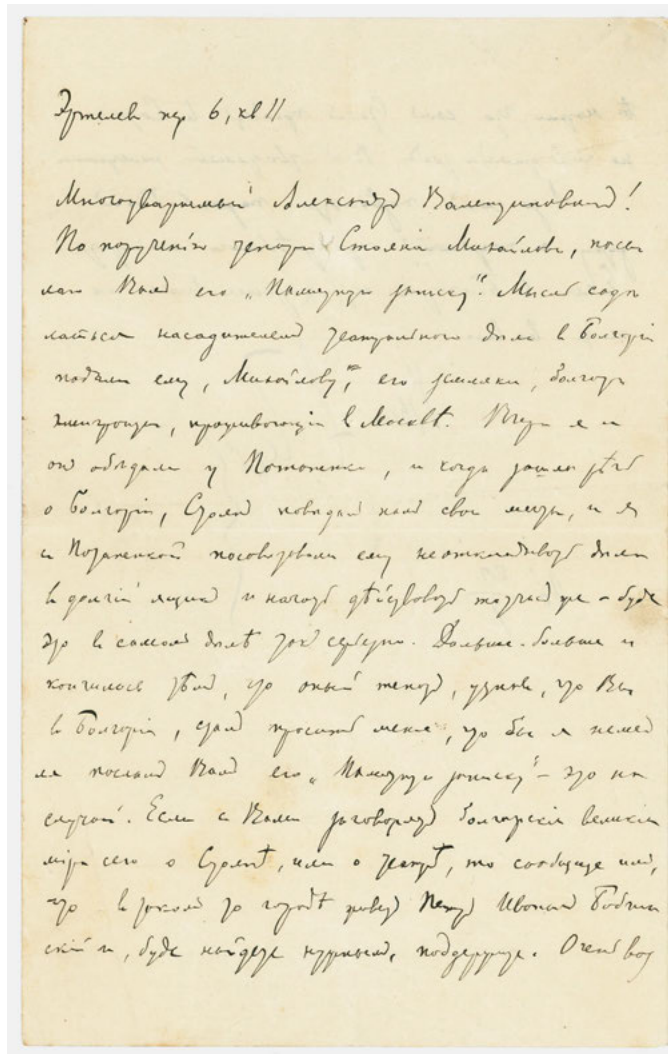 Эртелев пер 6, кв 11
Многоуважаемый Александр Валентинович!
По поручению тенора Стояна Михайлова, посы
лаю Вам его „Памятную записку“. Мысль сдѣ
латься насадителем театрального дѣла в Болгаріи
подали ему, Михайлову, его земляки, болгары
эмигранты, проживающіе в Москвѣ. Вчера я и
он обѣдали у Потапенки, и когда зашла рѣчь
о Болгаріи, Стоян поведал нам свои мечты, и я
и Потапенкой посоветовали ему не откладывать дѣла
в долгій ящик и начать дѣйствовать тотчас же – буде
это в самом дѣлѣ так серьезно. Дальше-больше и
кончилось тѣм, что оный тенор, узнав, что Вы
в Болгаріи, стал просить меня, что бы я немед
ля послал Вам его „Памятную записку“ – это на
случай. Если с Вами заговорят болгарскіе великіе
міра сего о Стоянѣ, или о театрѣ, то сообщите им,
что в таком то городѣ живет Петр Иваныч Бобчин
скій и, буде найдете нужным, поддержите. Очень воз